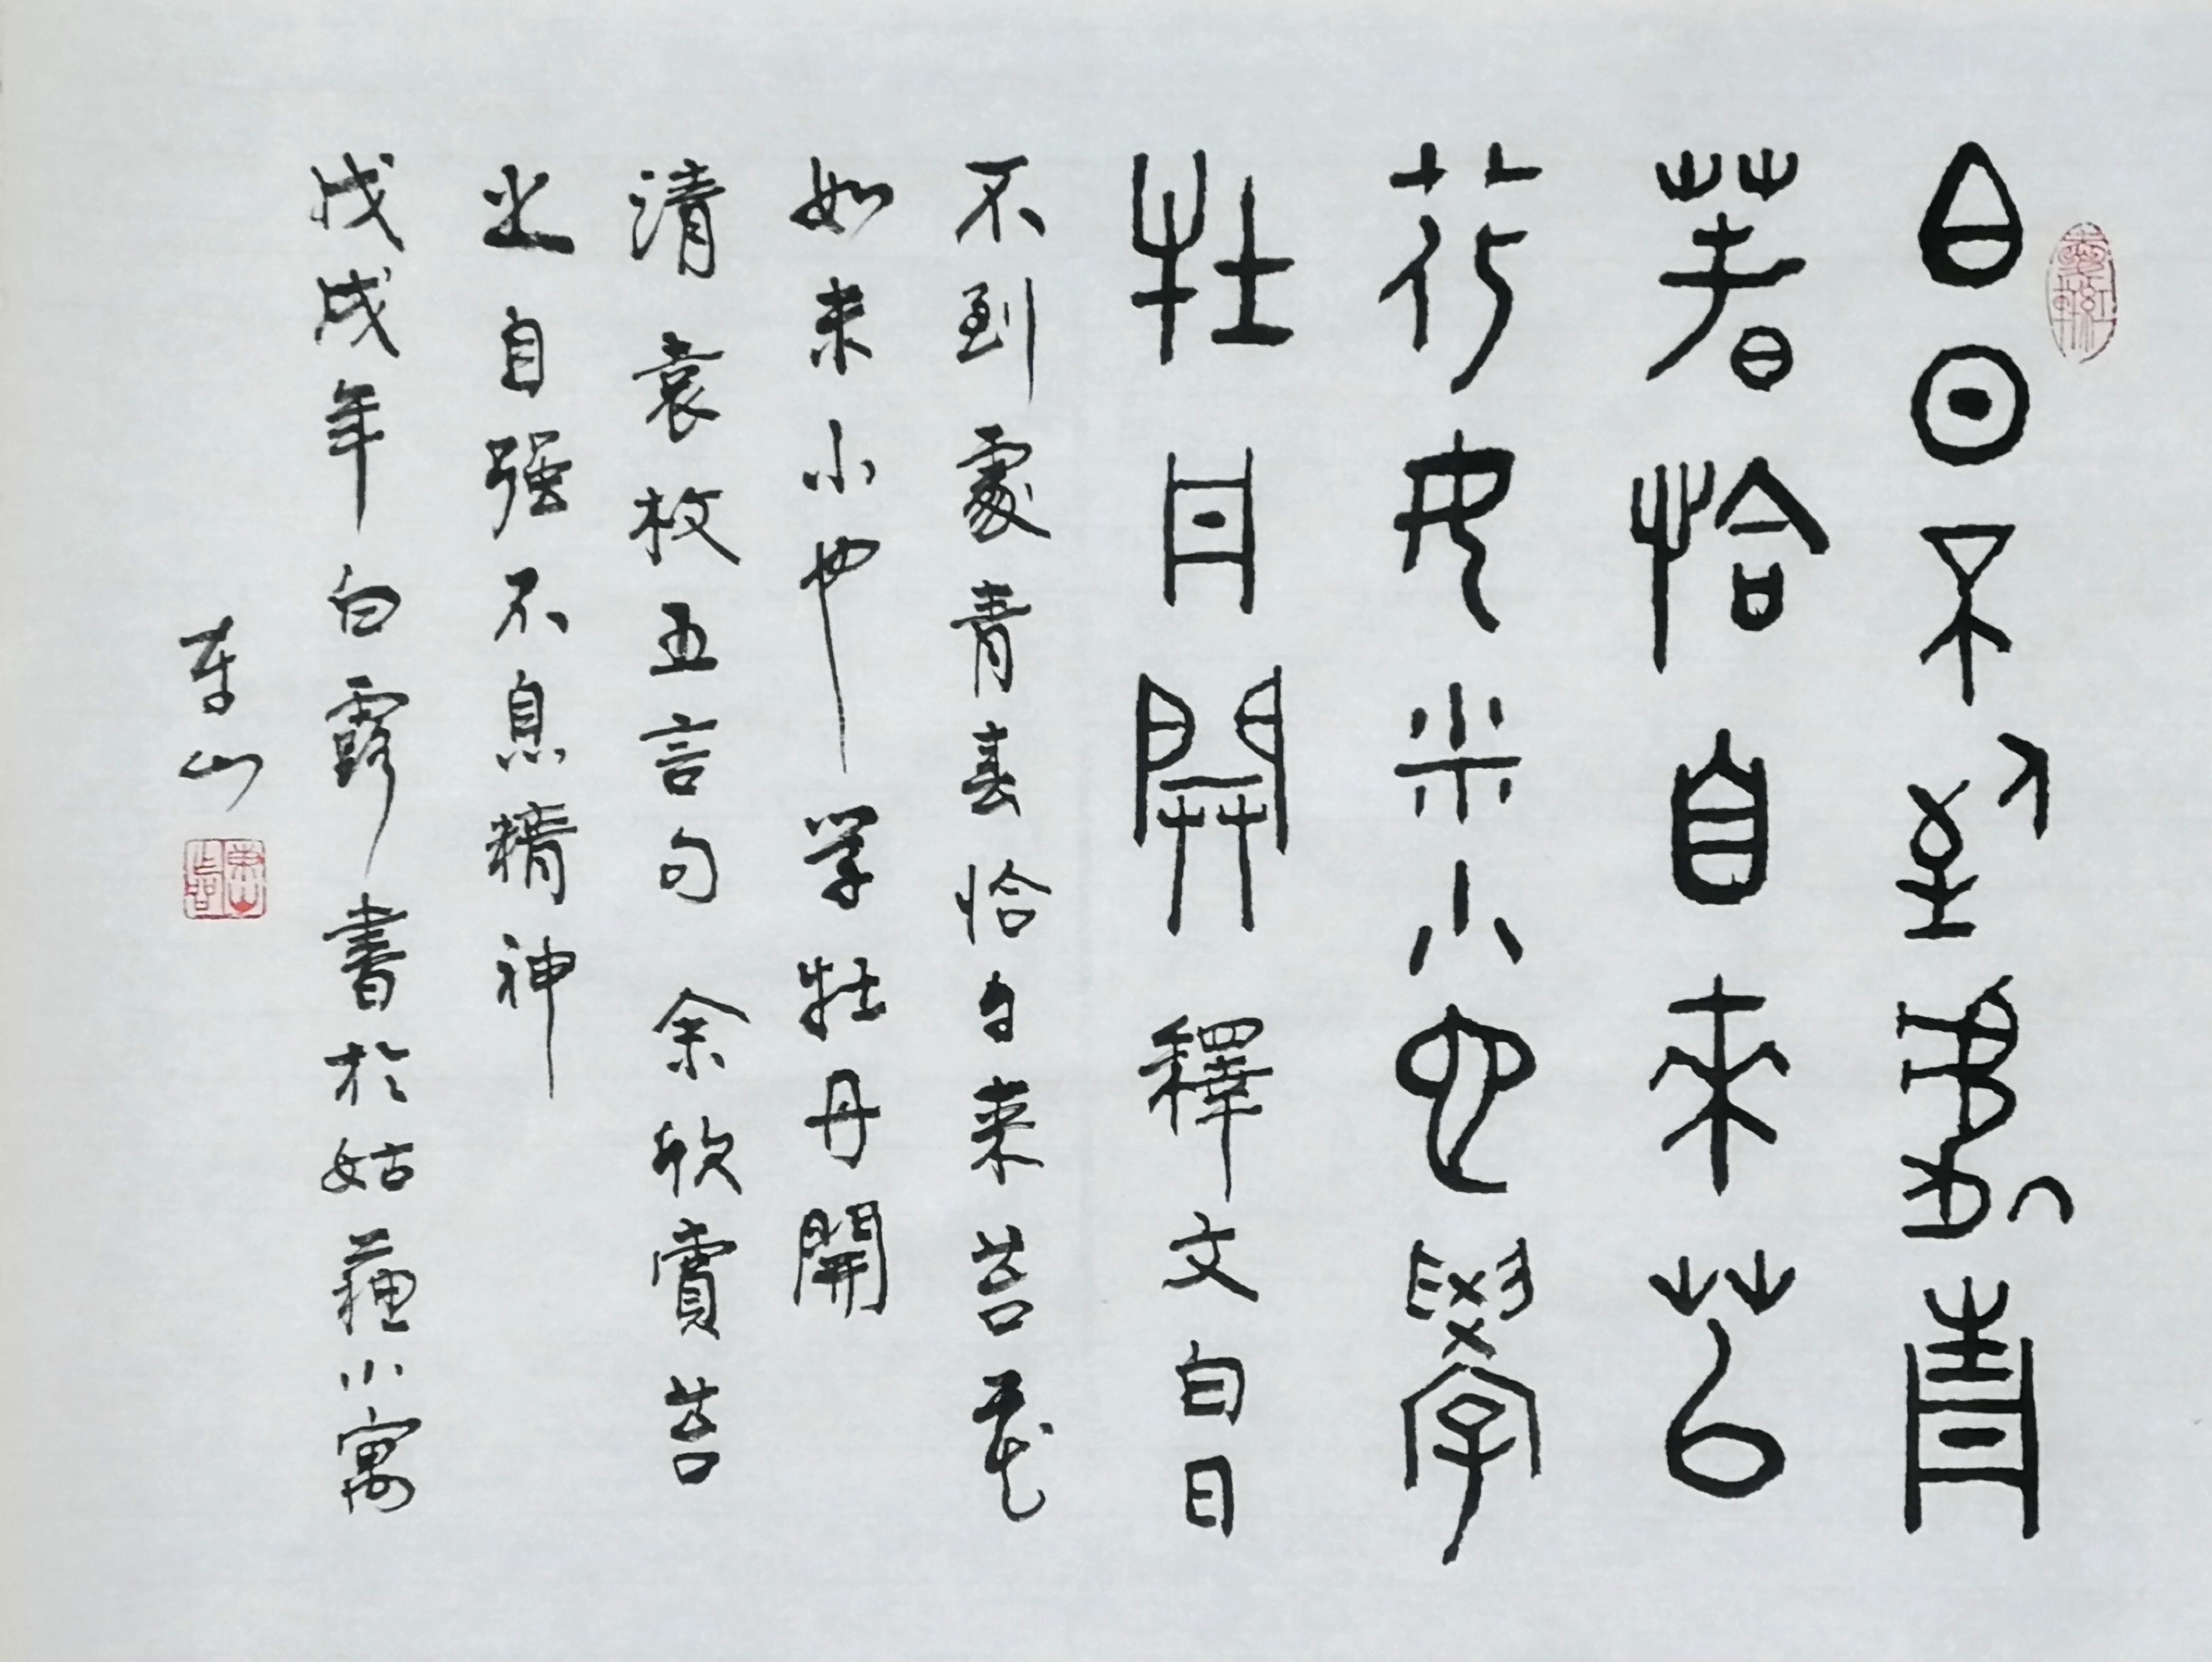 白日不到處青
春恰自來苔
花如米小也學
牡丹開 釋文 白日
不到處青春恰自来苔花
如米小也学牡丹開
清袁枚五言句 余欣賞苔
之自强不息精神
戊戌年白露書於姑蘇小寓
東山